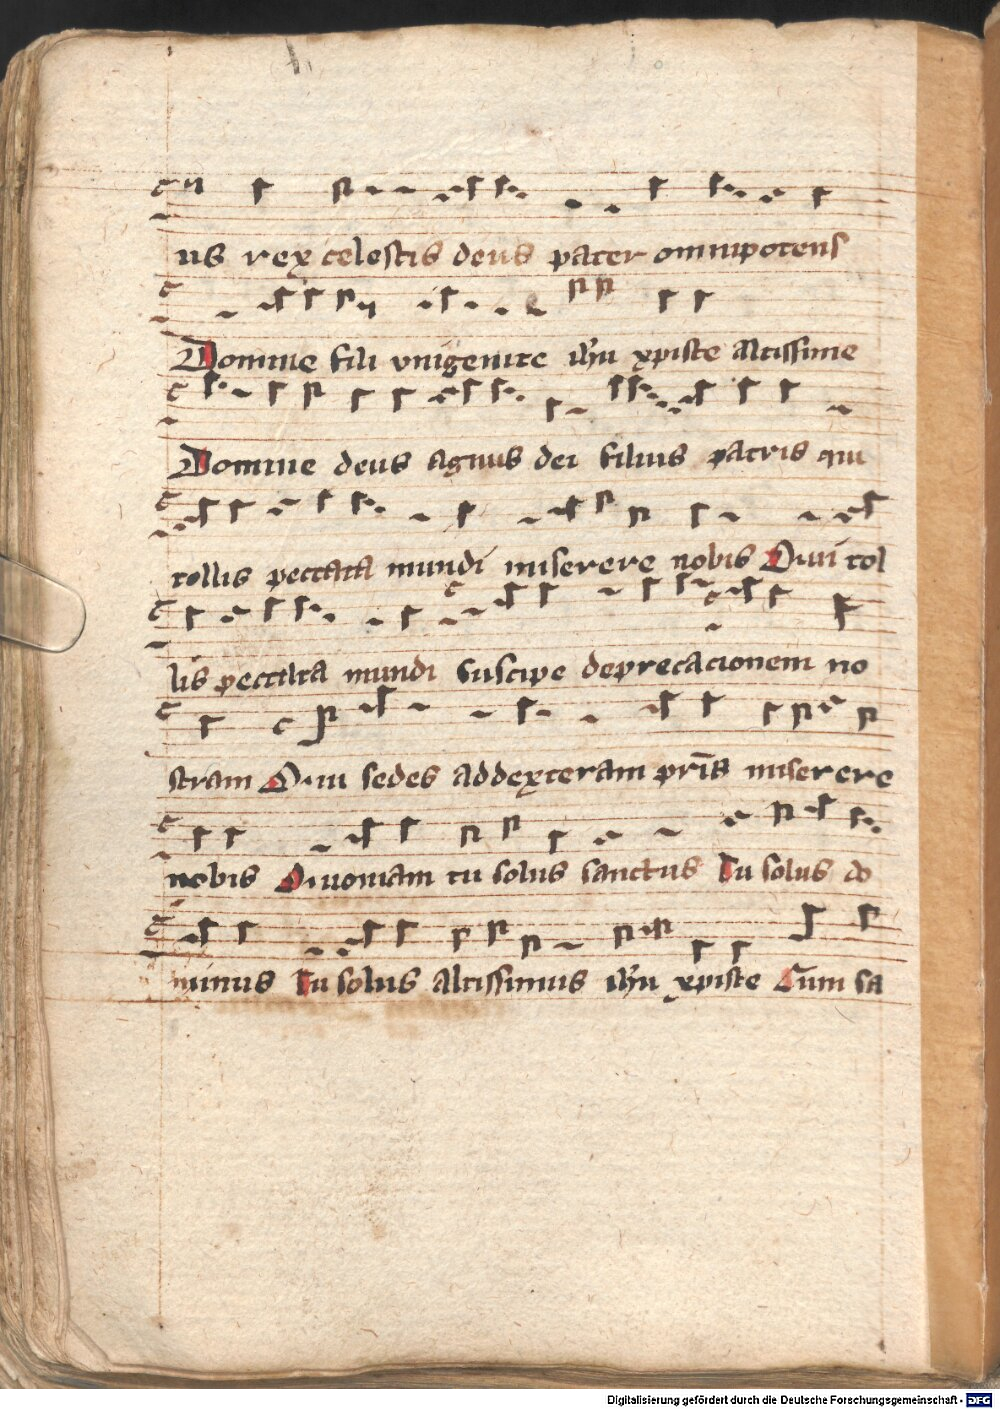 us rex celestis deus pater omnipotens
Domine fili vnigenite ihu xpiste altissime
Domine deus agnus dei filius patris qui
tollis peccata mundi miserere nobis Qui tol
lis peccata mundi suscipe deprecacionem no
stram Qui sedes addexteram pris miserere
nobis Quoniam tu solus sanctus Tu solus do
minus Tu solus altissimus ihu xpiste Cum sa
Digitalisierung gefördert durch die Deutsche Forschungsgemeinschaft - DFG